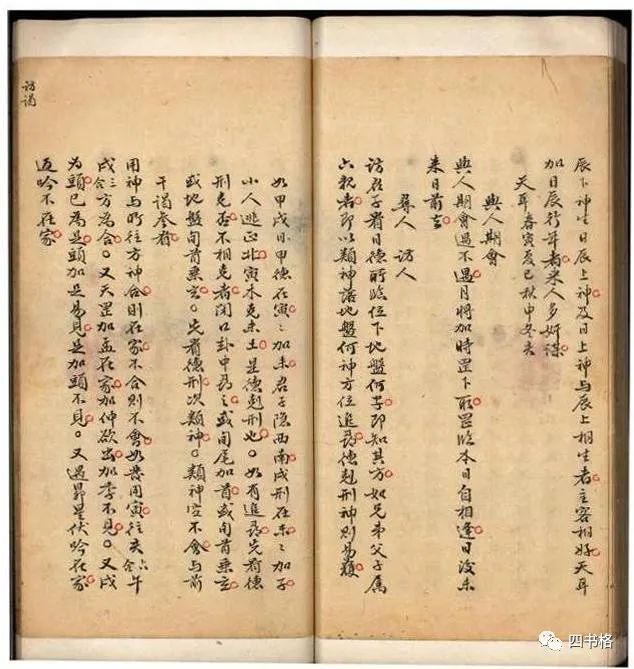 辰下神生日辰上神及日上神与辰上相生者主客相好天耳
加日辰行年者来人多奸謀
天耳春寅夏巳秋申冬亥
與人期會
與人期會過不遇月將加時罡下取罡臨本日自相逢日後未
来日前去
尋人 訪人
訪君子看日德所臨位下地盤何字即知其方如兄弟父子属
六親者即以類神落地盤何神方位追尋德剋刑神則易覆
訪謁
如甲戌日甲德在寅寅加未君子隐西南戌刑在未未加子
小人逃正北寅木克未土是德剋刑也如有追尋先看德
刑克否不相克者閉口卦中尋之或旬尾加首或旬首乗玄
或地盤旬首乗玄先看德刑次類神類神空不會与前
干謁参看
用神与所往方神合則在家不合則不會如發用寅往亥六合午
戌三合方為合又天罡加孟在家加仲欲出加季不見又戌
為頭巳為足頭加足易見足加頭不見又遇昴星伏吟在家
返吟不在家
四书格